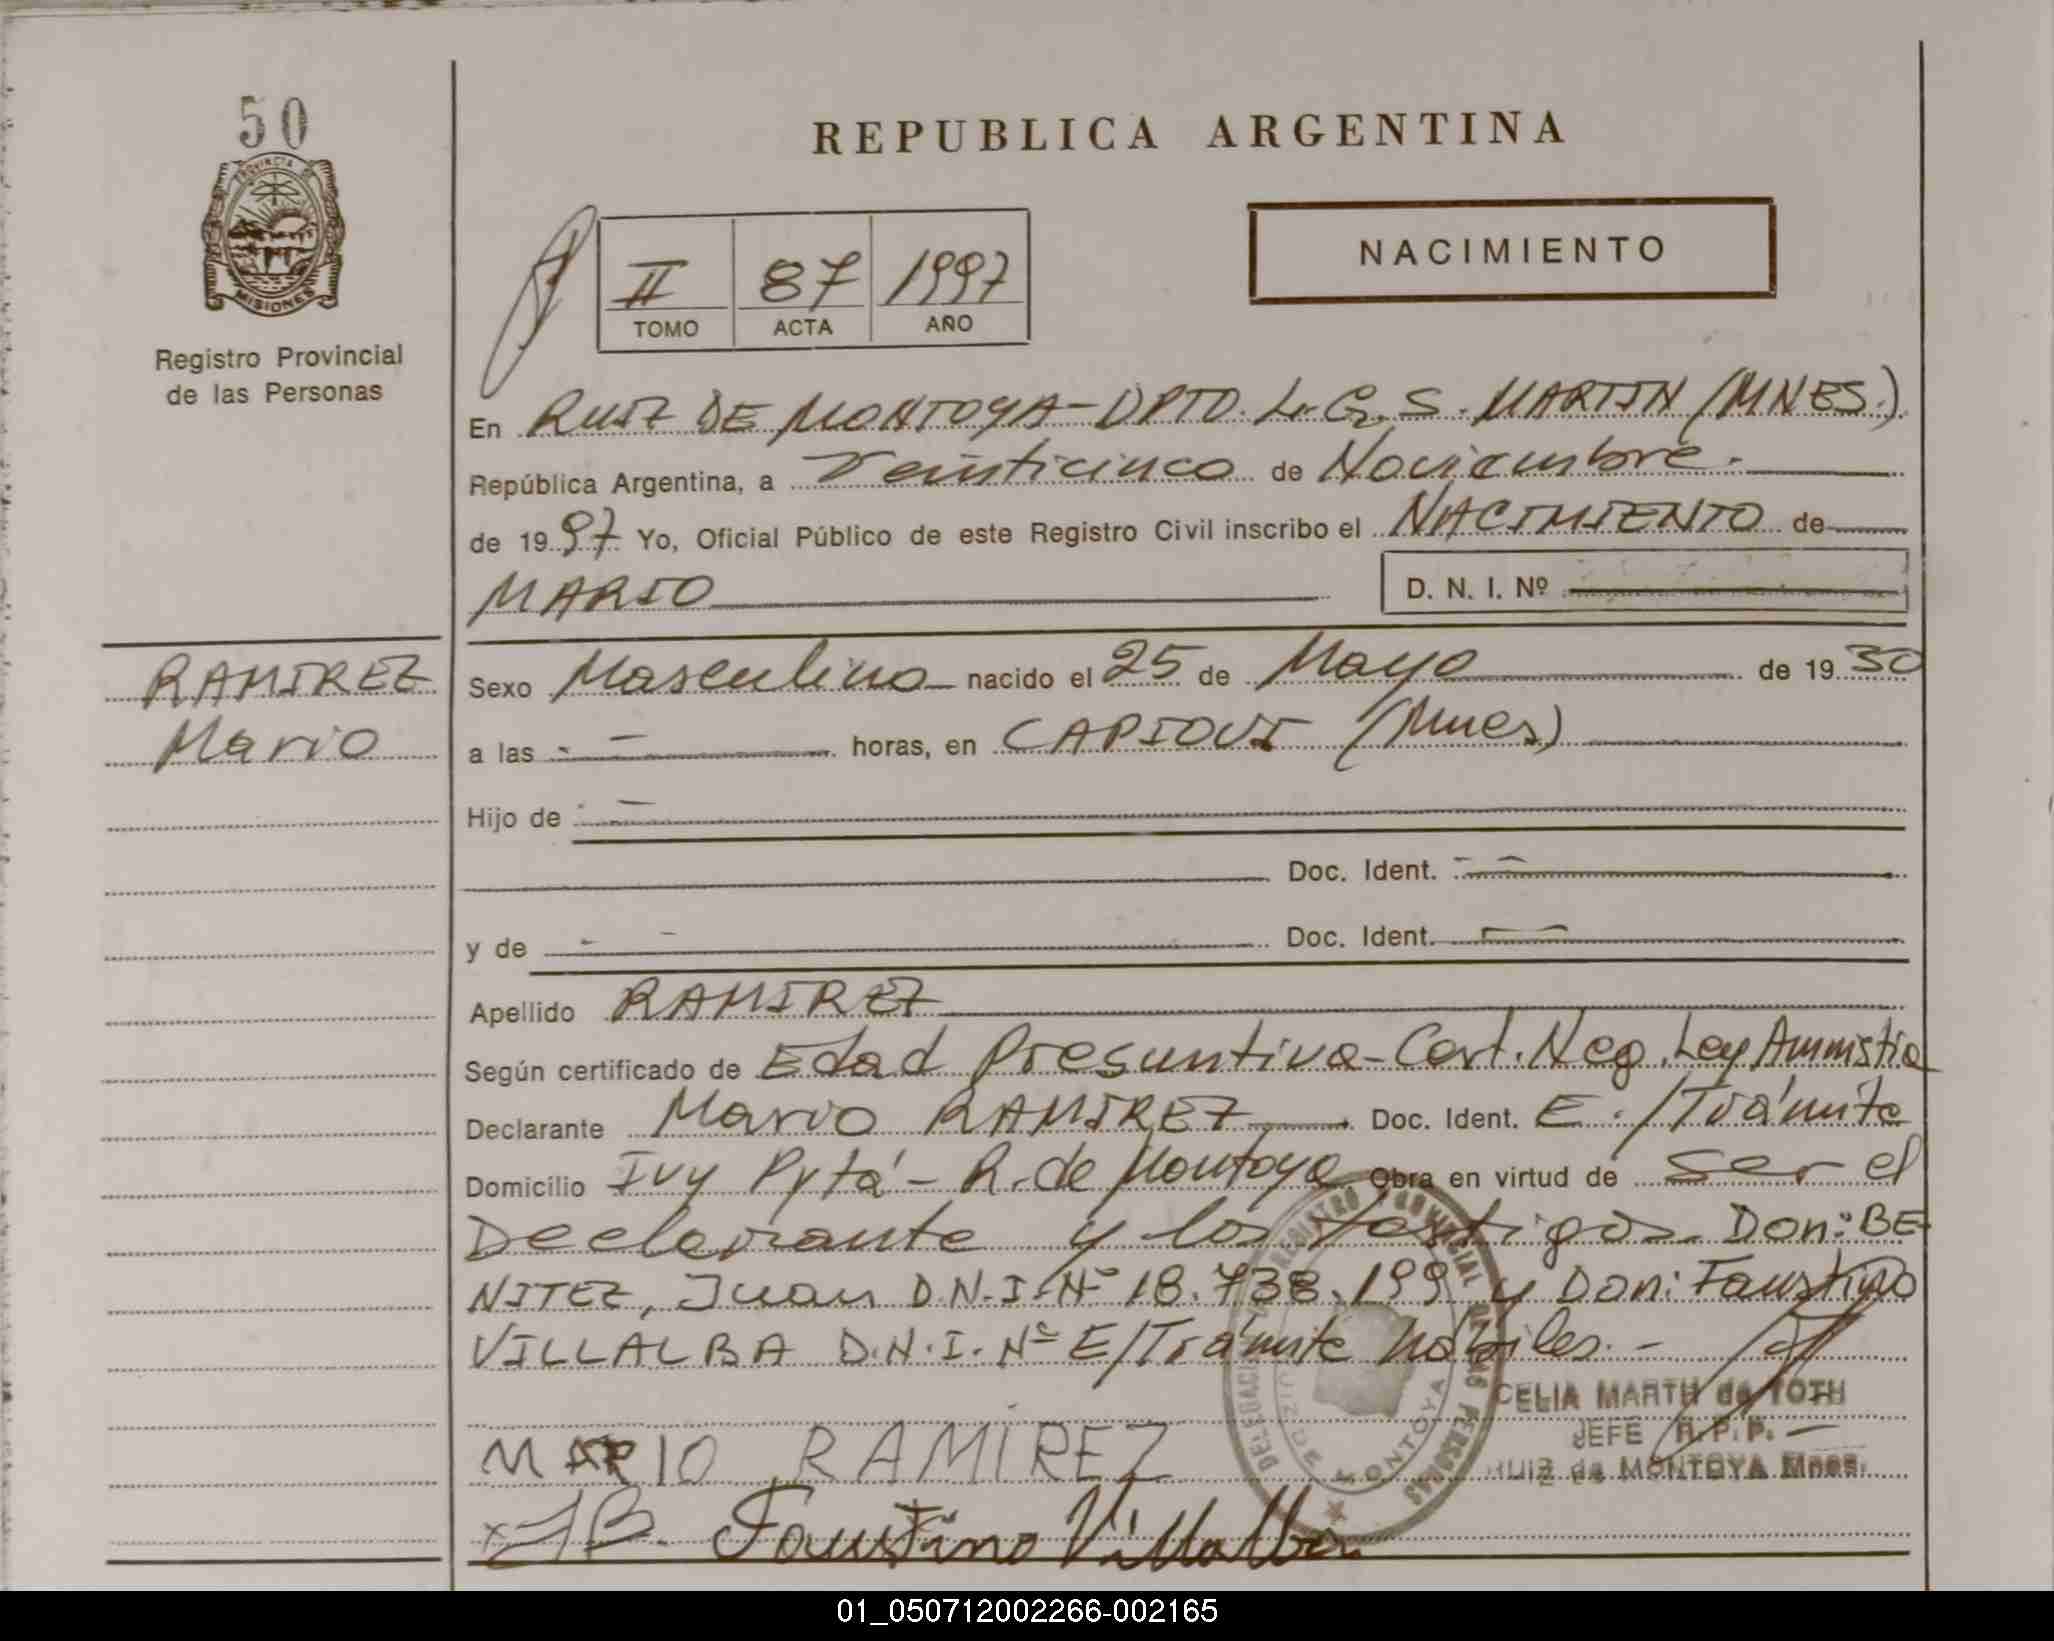 50
PROVINCIA DE
MISIONES
Registro Provincial
de las Personas
RAMIREZ
Mario
REPUBLICA ARGENTINA
NACIMIENTO
II 87 1997
TOMO ACTA AÑO
En RUIZ DE MONTOYA-DPTO. L.G.S. MARTIN (MNES.)
República Argentina, a Veinticinco de Noviembre.
de 1997 Yo, Oficial Público de este Registro Civil inscribo el NACIMIENTO de
MARIO D. N. I. Nº
Sexo Masculino nacido el 25 de Mayo de 1930
a las - - horas, en CAPIOVI (Mnes)
Hijo de - -
Doc. Ident. - -
y de - - Doc. Ident.
Apellido RAMIREZ
Según certificado de Edad Presuntiva-Cert. Neg. Ley Amnistia
Declarante Mario RAMIREZ Doc. Ident. E./Trámite
Domicilio Ivy Pytá - R. de Montoya Obra en virtud de ser el
Declarante y los testigos Don: BE
NITEZ, Juan D.N.I. Nº 18.738.199 y Don: Faustino
VILLALBA D.N.I. Nº E/Trámite hábiles. -
CELIA MARTH de TOTH
JEFE R.P.P.
RUIZ de MONTOYA Mnes.
MARIO RAMIREZ
x JB. Faustino Villalba
DELEGACION REGISTRO PROVINCIAL DE LAS PERSONAS
RUIZ DE MONTOYA
01_050712002266-002165